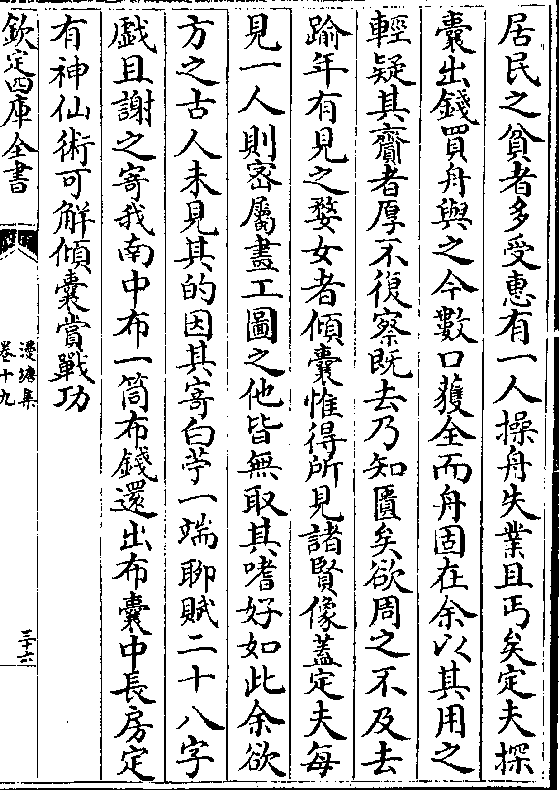 居民之貧者多受惠有一人操舟失業且丐矣定夫探
囊出錢買舟與之今數口獲全而舟固在余以其用之
輕疑其齎者厚不復察既去乃知匱矣欲周之不及去
踰年有見之婺女者傾囊惟得所見諸賢像蓋定夫每
見一人則密屬畫工圖之他皆無取其嗜好如此余欲
方之古人未見其的因其寄白苧一端聊賦二十八字
戲且謝之寄我南中布一筒布錢還出布囊中長房定
有神仙術可解傾囊賞戰功
欽定四庫全書
漫塘集
卷十九
三十六